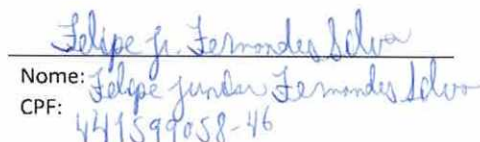 Felipe jr. Fernandes Silva
Nome: Felipe junior Fernandes Silva
CPF:
441599058-46